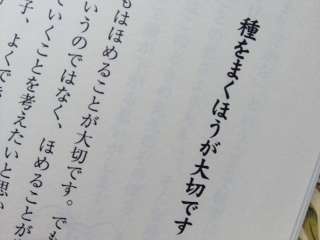 種をまくほうが大切です
もはほめることが大切です。でも
いうのではなく、ほめることが
ていくことを考えたいと思い
子、よくでき